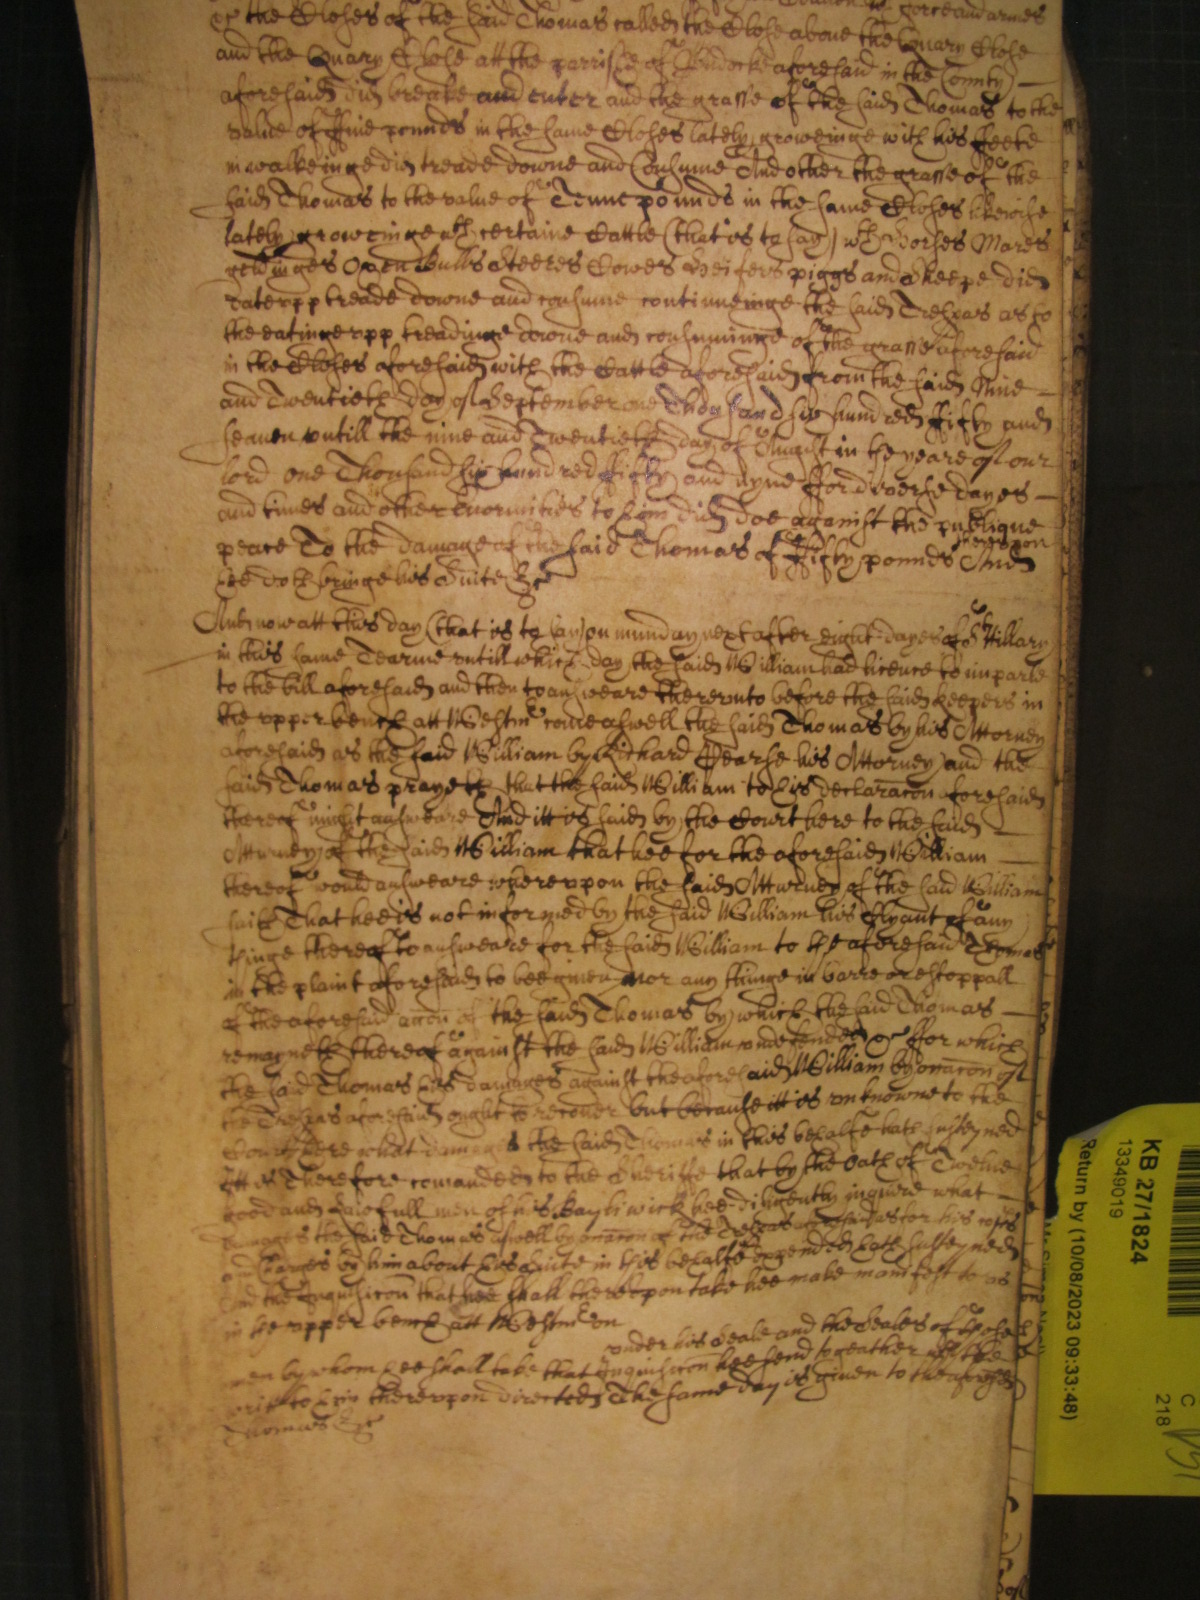 the Closes of the said Thomas called the Close above the Quary Close
and the Quary Close att the parrishe of aforesaid in the County
aforesaid did breake and enter and the grasse of the said Thomas to the
value of ffive pounds in the same Closes lately groweinge with his ffeete
in walkeinge did treade downe and Consume And other the grasse of the
said Thomas to the value of Tenne pounds in the same Closes likewise
lately groweinge wth certaine Cattle (that is to say) wth Horses Mares
geldinges Oxen Bulls Steeres Cowes Heifers piggs and Sheepe did
eate upp treade downe and consume continueinge the said Trespas as to
the eatinge upp treadinge downe and consuminge of the grasse aforesaid
in the Closes aforesaid with the Cattle aforesaid from the said Nine
and Twentieth day of September one Thousand six hundred ffifty and
seaven untill the nine and Twentieth day of August in the yeare of our
lord one Thousand six hundred ffifty and nyne ffor diverse dayes
and times and other enormities to him did doe against the publique
peace To the damage of the said Thomas of ffifty pounds And thereupon
hee doth bringe his Suite &c
And now att this day (that is to say) on munday next after eight dayes of St Hillary
in this same Tearme untill which day the said William had licence to imparle
to the bill aforesaid and then to answeare thereunto before the said keepers in
the upper bench att Westmr come aswell the said Thomas by his Attorney
aforesaid as the said William by Richard Pearse his Attorney and the
said Thomas prayeth that the said William to his declaracon aforesaid
thereof might answeare And itt is said by the Court here to the said
Atturney of the said William that hee for the aforesaid William
thereof would answeare whereupon the said Atturney of the said William
saith That hee is not informed by the said William his Clyant of any
thinge thereof to answeare for the said William to the aforesaid Thomas
in the plaint aforesaid to bee given nor any thinge in barre or estoppall
of the aforesaid accon of the said Thomas by which the said Thomas
remayneth thereof against the said William undefended &c ffor which
the said Thomas his damages against the aforesaid William by occacon of
the Trespas aforesaid ought to recover but because itt is unknowne to the
Court here what damages the said Thomas in this behalfe hath susteyned
itt is Therefore comanded to the Sheriffe that by the Oath of Twelve
good and lawfull men of his Bayliwick hee diligently inquire what
damages the said Thomas aswell by occacon of the Trespas aforesaid as for his costs
and Charges by him about his Suite in this behalfe expended hath susteyned
And the Inquisicon that hee shall thereupon take hee make manifest to us
in the upper bench att Westmr on
under his Seale and the Seales of those
men by whom hee shall take that Inquisicon hee send togeather wth the
writt to him thereupon directed The same day is given to the aforesaid
Thomas &c
KB 27/1824
13349019
Return by (10/08/2023 09:33:48)
C
218